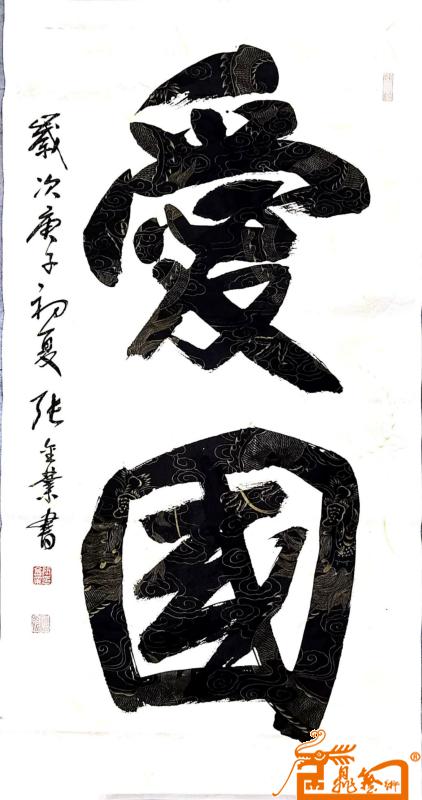 愛國
歲次庚子初夏 张金業書